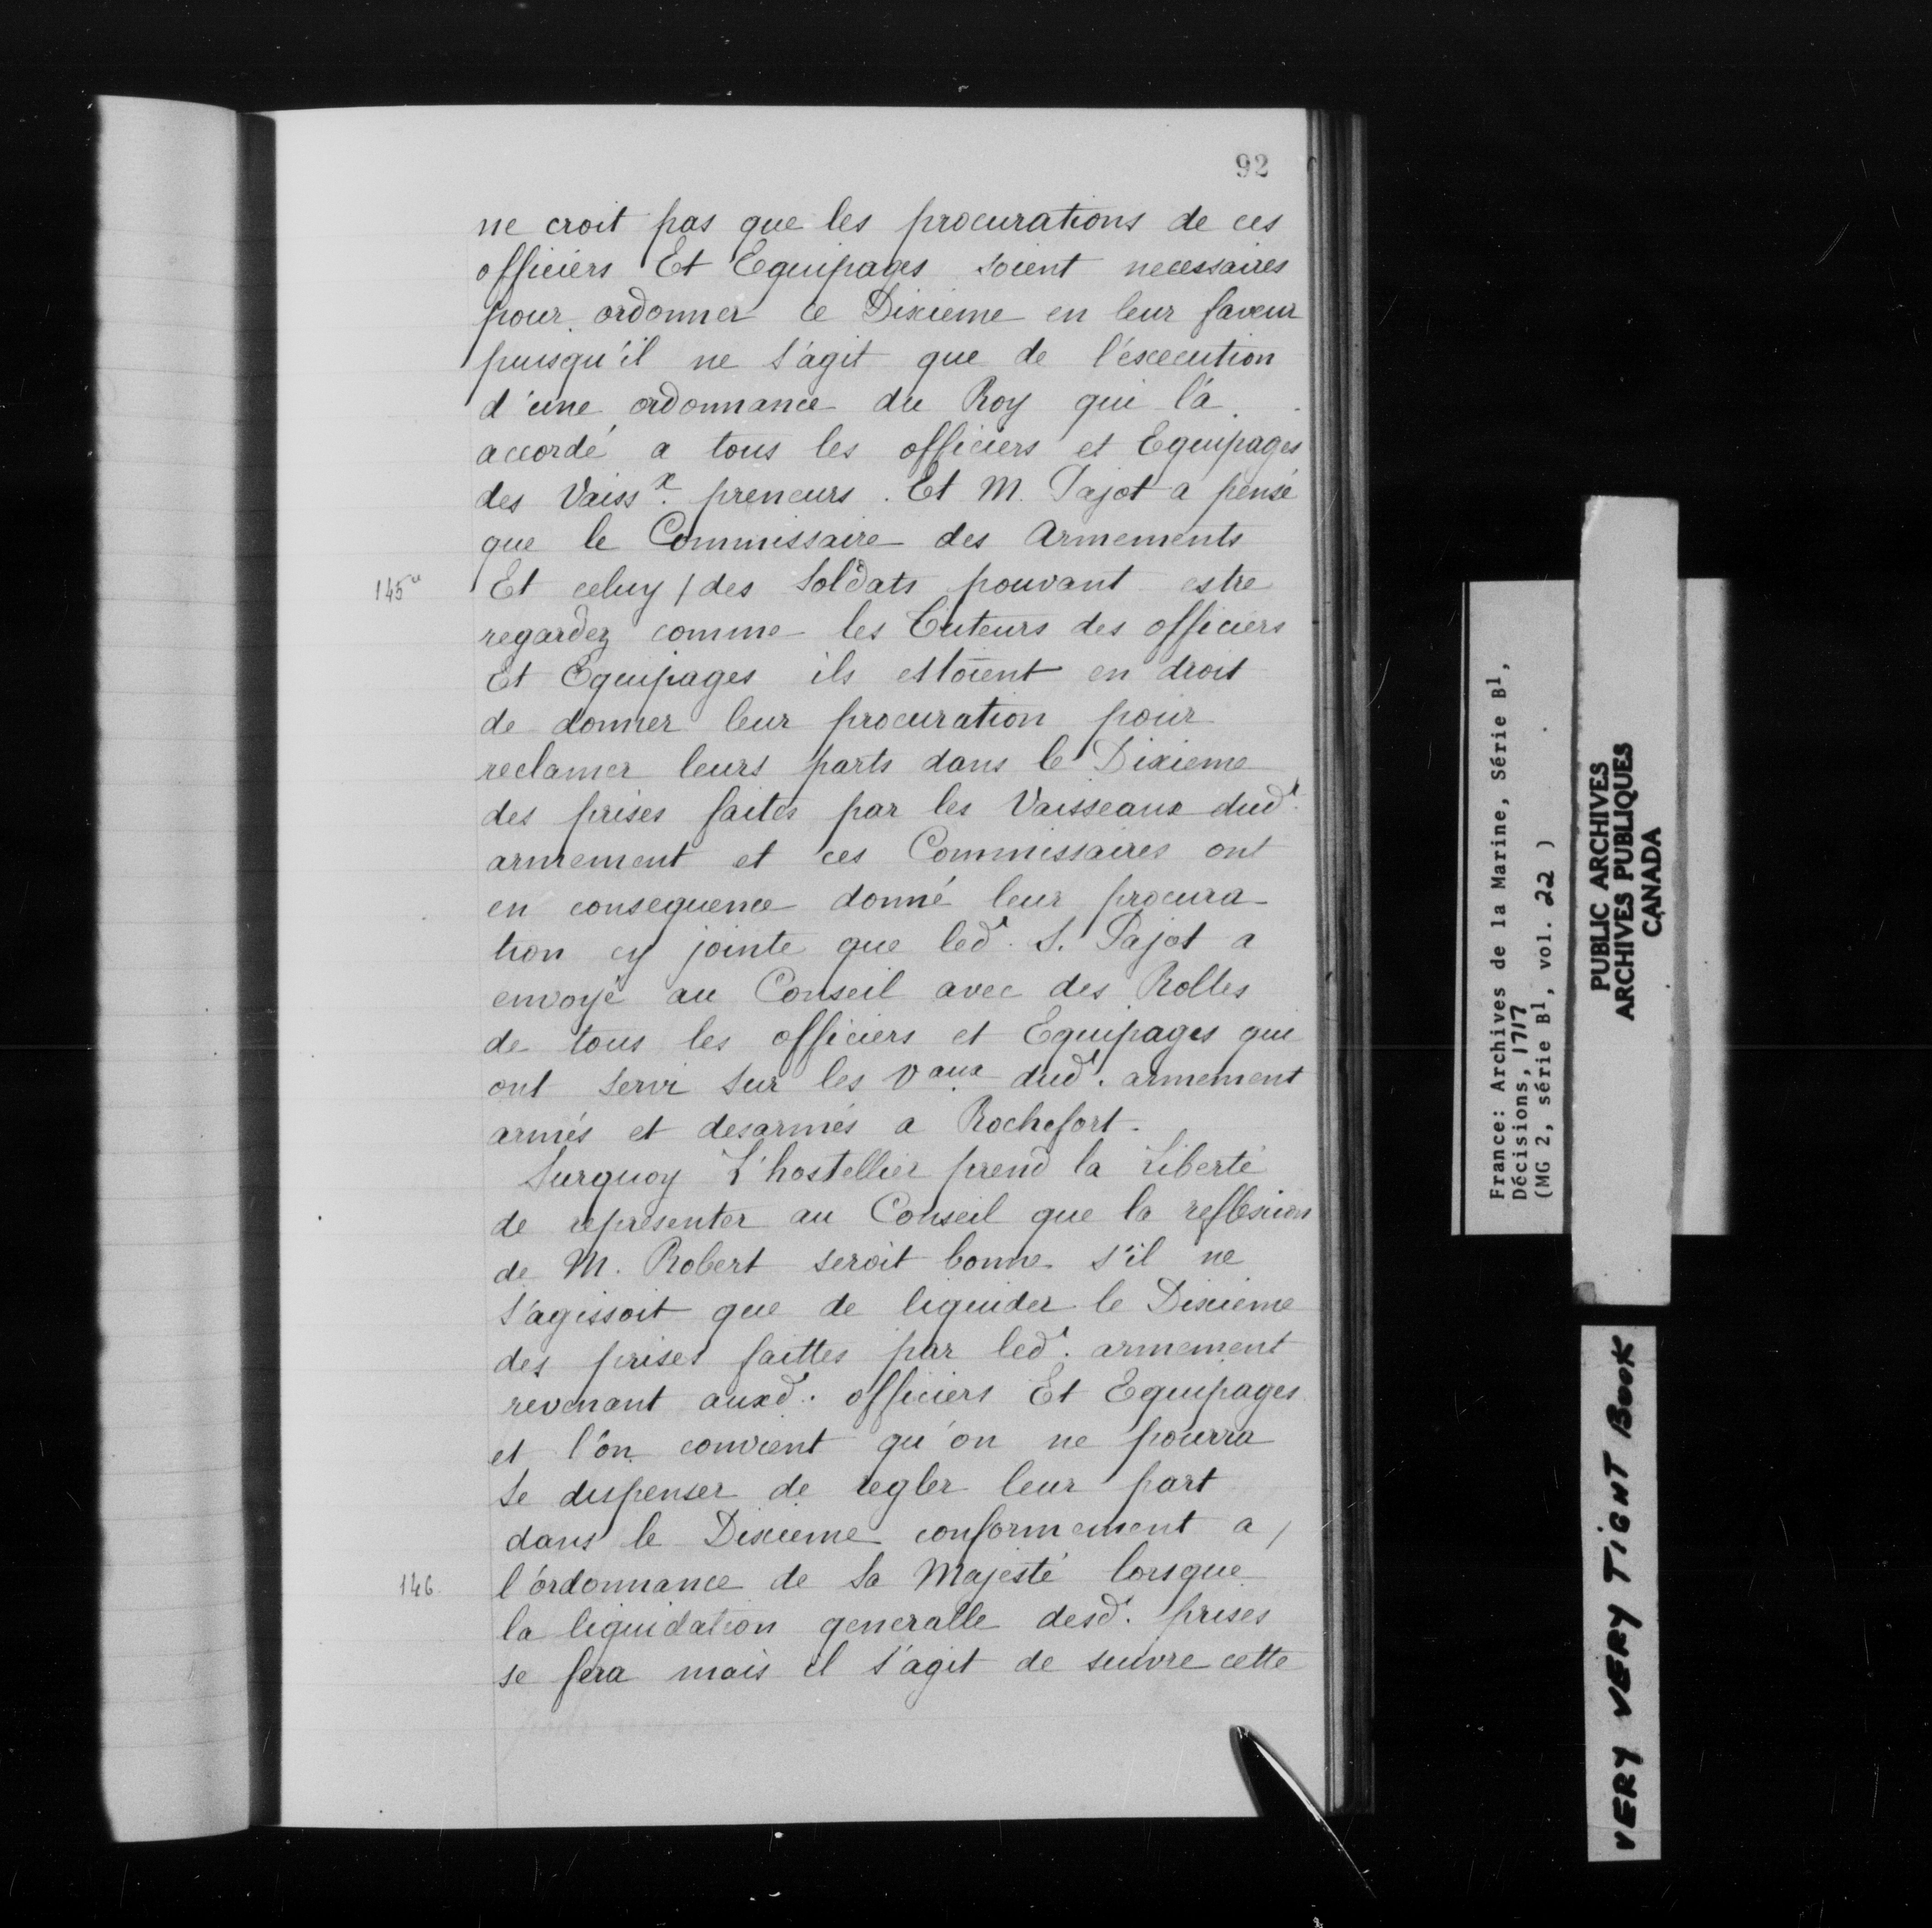 92
ne croit pas que les procurations de ces
officiers Et Equipages soient necessaires
pour ordonner ce Dixieme en leur faveur
puisqu'il ne s'agit que de l'éxecution
d'une ordonnance du Roy qui l'a
accordé a tous les officiers et Equipages
des Vaiss.x preneurs. Et M. Pajot a pensé
que le Commissaire des Armements
145v Et celuy / des soldats pouvant estre
regardez comme les Tuteurs des officiers
Et Equipages ils estoient en droit
de donner leur procuration pour
reclamer leurs parts dans le Dixieme
des prises faites par les Vaisseaux dud.t
armement et ces Commissaires ont
en consequence donné leur procura-
tion cy jointe que led. S. Pajot a
envoyé au Conseil avec des Rolles
de tous les officiers et Equipages qui
ont servi sur les Vaux dud.t armement
armés et desarmés a Rochefort.
Surquoy L'hostellier prend la Liberté
de representer au Conseil que la reflexion
de M. Robert seroit bonne s'il ne
s'agissoit que de liquider le Dixieme
des prises faittes par led.t armement
revenant auxd.t officiers Et Equipages
et l'on convient qu'on ne pourra
se dispenser de regler leur part
dans le Dixieme conformement a /
146. l'ordonnance de Sa Majesté lorsque
la liquidation generalle desd.t prises
se fera mais il s'agit de suivre cette
France: Archives de la Marine, Série B1,
Décisions, 1717
(MG 2, série B1, vol. 22 )
PUBLIC ARCHIVES
ARCHIVES PUBLIQUES
CANADA
VERY VERY TIGHT BOOK